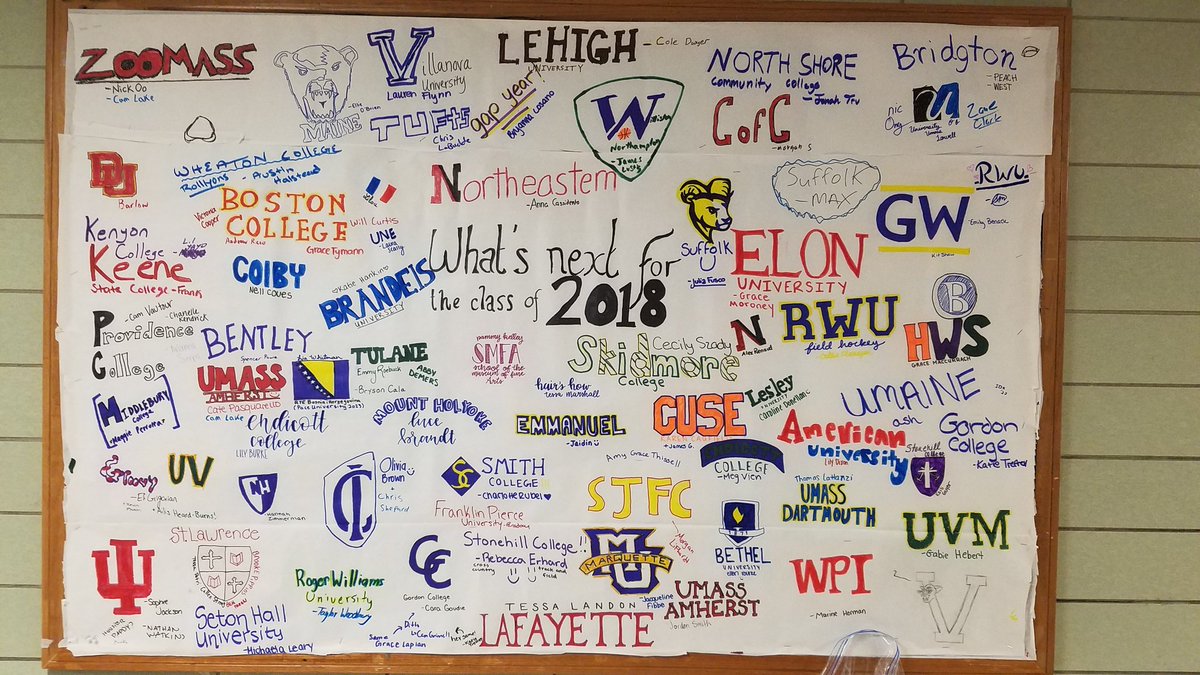 ZOOMASS
- Nick Oo
- Cam Lake
MAINE
Villanova
University
Lauren Flynn
TUFTS
Chris
LaBudde
gap year!
Bryanna Lozano
LEHIGH
UNIVERSITY
- Cole Dwyer
W
Northampton
- James
NORTH SHORE
Community College
- Jonah Tru
CofC
- morgan S
Bridgton
- PEACH
- WEST
nic
University
Umass
Lowell
Zane
Clerk
DU
Barlow
WHEATON COLLEGE
- Austin
Halstead
BOSTON
COLLEGE
Victoria
Cooper
Andrew Reed
Will Curtis
Grace Tymann
UNE
Northeastern
- Anna Casavento
Suffolk
- MAX
RWU.
GW
- Emily Benack
- Kit Shaw
Kenyon
College
Keene
State College - Frank
COlBY
Nell Coves
Katie Hankins
BRANDEIS
UNIVERSITY
What's next for
the class of 2018
Suffolk
- Julia Fusco
ELON
UNIVERSITY
- Grace
Moroney
B
Providence
College
- Cam Vautour
- Chanelle
Kendrick
BENTLEY
Spencer
TULANE
Emmy Roebuck
ABBY
DEMERS
- Bryson Cala
SMFA
School of the
museum of fine
Arts
Skidmore
College
Cecily Szady
N
Alex
RWU
field hockey
HWS
GRACE MACCURRACH
UMASS
AMHERST
Cate Pasquarello
Cam Lake
(Pace University 2023)
MIDDLEBURY
College
- Maggie
endicott
college
LILY BURKE
MOUNT HOLYOKE
luce
brandt
hair's how
Tess Marshall
EMMANUEL
- Jaidin
CUSE
+ James G.
Lesley
UNIVERSITY
Caroline
UMAINE
ash
American
University
Lily Dixon
Gordon
College
- Kate Treitar
Stonehill
College
Emory
UV
- Aila Heard-Burns!
NH
Hannah
Zimmerman
IC
Olivia
Brown
Chris
Shepard
SMITH
COLLEGE
- Charlotte Rubel
Amy Grace Thissell
COLLEGE
- Meg Vien
SJFC
Thomas Lattanzi
UMASS
DARTMOUTH
Franklin Pierce
University
UVM
- Gabie Hebert
St Lawrence
IU
- Sophie
Jackson
- NATHAN
WATKINS
Seton Hall
University
- Michaela Leary
Roger Williams
University
- Taylor
CC
Gordon College
- Cara Goudie
Stonehill College!!
- Rebecca Erhard
cross
country
track and
field
MU
MARQUETTE
- Jacqueline
Fibbe
BETHEL
UNIVERSITY
WPI
- Marine Herman
UMASS
AMHERST
Jordan Smith
TESSA LANDON
LAFAYETTE
Ditto
Same
Grace Laplan
V